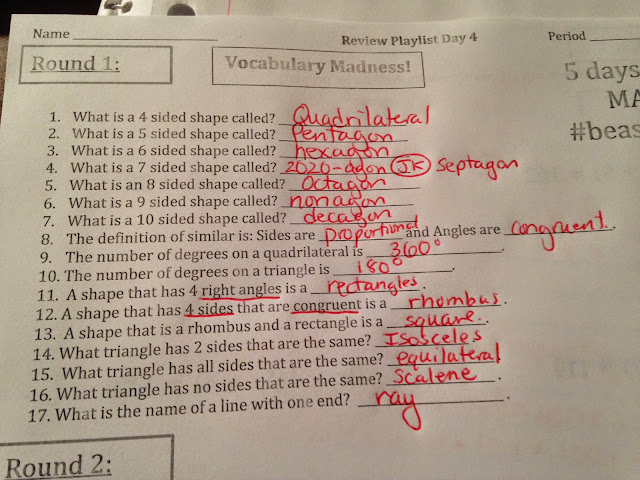 Name ____________ Review Playlist Day 4 Period ________
Round 1:
Vocabulary Madness!
5 days
MA
#beas
1. What is a 4 sided shape called? Quadrilateral
2. What is a 5 sided shape called? Pentagon
3. What is a 6 sided shape called? hexagon
4. What is a 7 sided shape called? 2020-agon JK Septagon
5. What is an 8 sided shape called? Octagon
6. What is a 9 sided shape called? nonagon
7. What is a 10 sided shape called? decagon
8. The definition of similar is: Sides are proportional and Angles are congruent.
9. The number of degrees on a quadrilateral is 360°.
10. The number of degrees on a triangle is 180°.
11. A shape that has 4 right angles is a rectangles.
12. A shape that has 4 sides that are congruent is a rhombus.
13. A shape that is a rhombus and a rectangle is a square.
14. What triangle has 2 sides that are the same? Isosceles
15. What triangle has all sides that are the same? equilateral
16. What triangle has no sides that are the same? Scalene.
17. What is the name of a line with one end? ray.
Round 2: